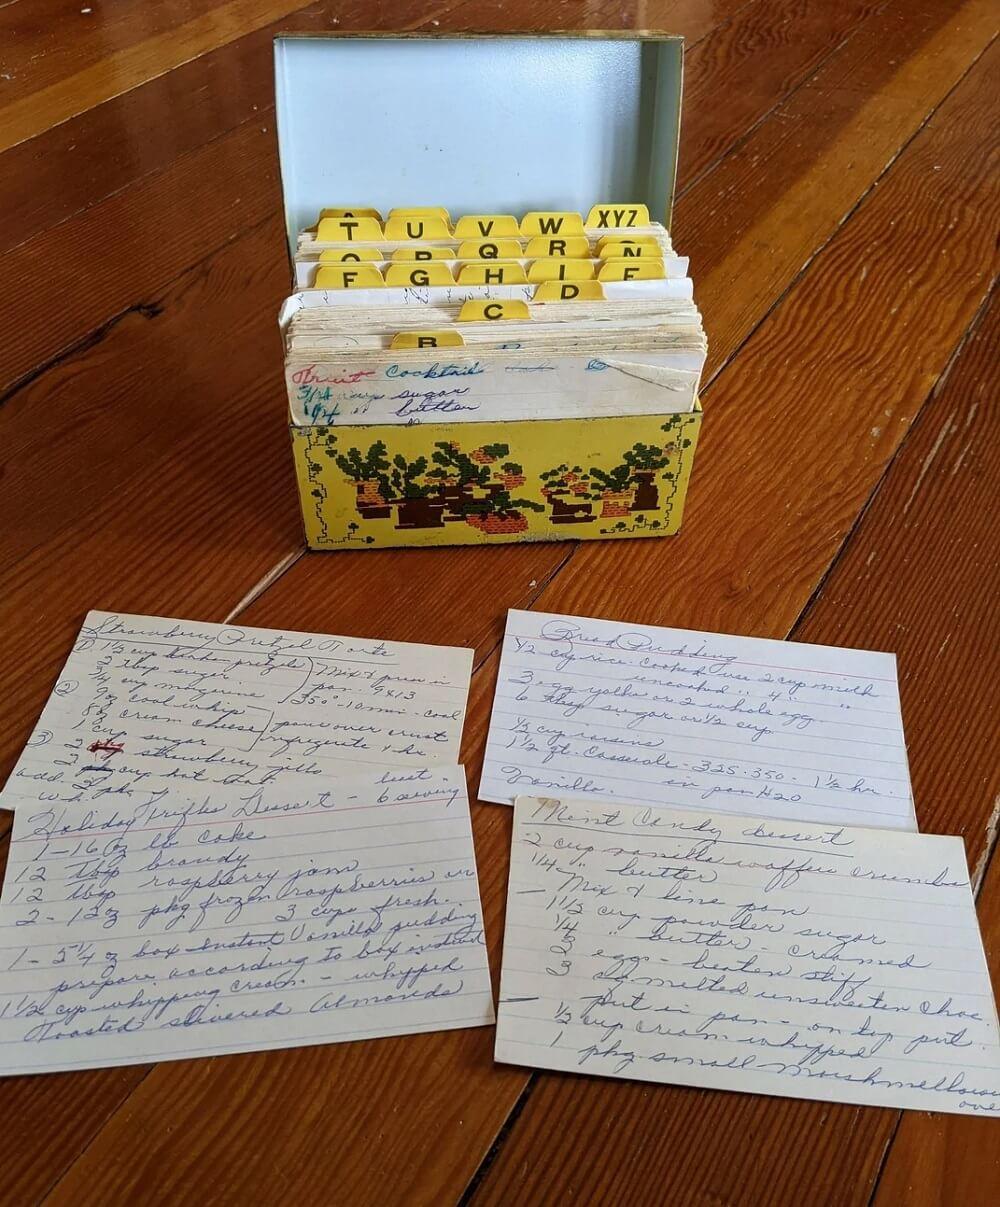 T U V W XYZ
Q R N
F G H I E
D
C
B
Fruit Cocktail
3/4 cup sugar
1/4 " butter
Strawberry Pretzel Torte
1) 1 1/3 cup pretzels
2 tbsp sugar
3/4 cup margarine
Mix & press in
pan. 9x13
350° - 10 min - cool
2) 9 oz cool whip
8 oz cream cheese
1 cup sugar
pour over crust
refrigerate 1 hr.
3) 2 strawberry jello
2 cup hot
add
Holiday Trifle Dessert - 6 serving
1 - 16 oz lb cake
12 tbsp brandy
12 tbsp raspberry jam
2 - 12 oz pkg frozen raspberries or
3 cups fresh.
1 - 5 1/4 oz box instant Vanilla pudding
prepare according to box instruct
1 1/2 cup whipping cream - whipped
Toasted slivered Almonds
Bread Pudding
1/2 cup rice. Cooked use 2 cup milk
uncooked " 4 " "
3 egg yolks or 2 whole egg
6 tbsp sugar or 1/2 cup.
1/2 cup raisins
1 1/2 qt. Casserole - 325-350 - 1 1/2 hr.
in pan H20
Vanilla.
Mint Candy dessert
2 cup vanilla waffer crumbs
1/4 " butter
- Mix & line pan
1 1/2 cup powder sugar
1/4 " butter - creamed
2 eggs - beaten stiff
3 melted unsweeten choc.
- put in pan - on top put.
1/2 cup cream whipped
1 phg small marshmellows
over